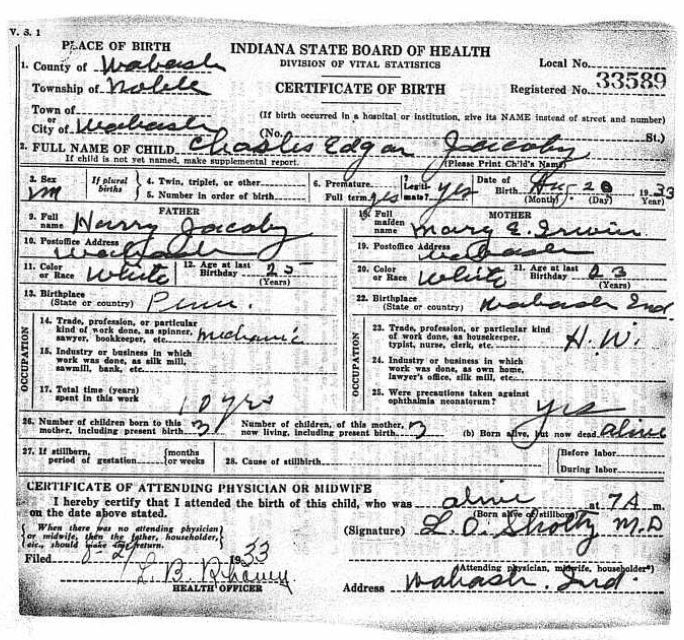 V. S. 1
PLACE OF BIRTH
INDIANA STATE BOARD OF HEALTH
DIVISION OF VITAL STATISTICS
CERTIFICATE OF BIRTH
Local No.
Registered No. 33589
1. County of Wabash
Township of Noble
Town of
or
City of Wabash
(If birth occurred in a hospital or institution, give its NAME instead of street and number)
(No. St.)
2. FULL NAME OF CHILD Charles Edgar Jacoby
If child is not yet named, make supplemental report. (Please Print Child's Name)
3. Sex m
If plural births
4. Twin, triplet, or other
5. Number in order of birth
6. Premature
Full term yes
7 Legitimate? yes
Date of Birth Aug. 20 1933
(Month) (Day) (Year)
FATHER
9. Full name Harry Jacoby
10. Postoffice Address Wabash
11. Color or Race White
12. Age at last Birthday 25
(Years)
13. Birthplace (State or country)
OCCUPATION
14. Trade, profession, or particular kind of work done, as spinner, sawyer, bookkeeper, etc. mechanic
15. Industry or business in which work was done, as silk mill, sawmill, bank, etc.
17. Total time (years) spent in this work 10 yrs
MOTHER
18. Full maiden name Mary E. Irwin
19. Postoffice Address Wabash
20. Color or Race White
21. Age at last Birthday 23
(Years)
22. Birthplace (State or country) Wabash Ind
OCCUPATION
23. Trade, profession, or particular kind of work done, as housekeeper, typist, nurse, clerk, etc. H. W.
24. Industry or business in which work was done, as own home, lawyer's office, silk mill, etc.
25. Were precautions taken against ophthalmia neonatorum? yes
26. Number of children born to this mother, including present birth 3
Number of children, of this mother, now living, including present birth 3
(b) Born alive, but now dead alive
27. If stillborn, period of gestation
months or weeks
28. Cause of stillbirth
Before labor
During labor
CERTIFICATE OF ATTENDING PHYSICIAN OR MIDWIFE
I hereby certify that I attended the birth of this child, who was alive at 7 A m.
on the date above stated. (Born alive or stillborn)
When there was no attending physician or midwife, then the father, householder, etc., should make this return.
(Signature) L. O. Sholty M.D
(Attending physician, midwife, householder)
Filed 1933
L. B. Rhamy
HEALTH OFFICER
Address Wabash. Ind.